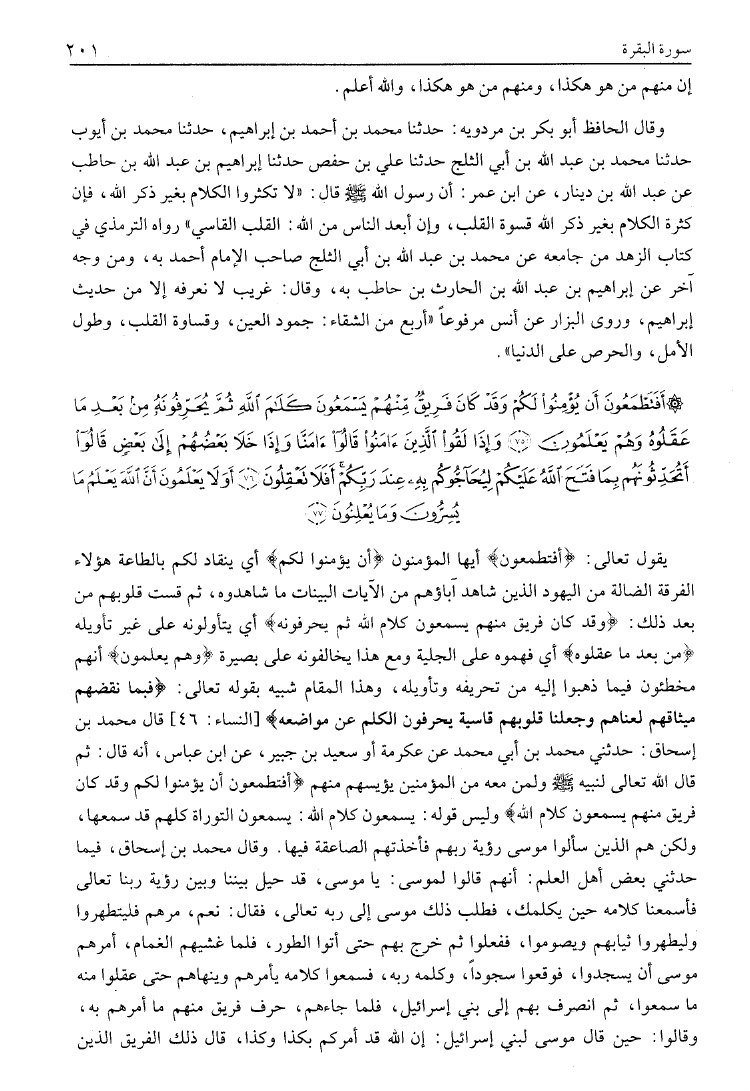 سورة البقرة ٢٠١
إن منهم من هو هكذا، ومنهم من هو هكذا، والله أعلم.
وقال الحافظ أبو بكر بن مردويه: حدثنا محمد بن أحمد بن إبراهيم، حدثنا محمد بن أيوب
حدثنا محمد بن عبد الله بن أبي الثلج حدثنا علي بن حفص حدثنا إبراهيم بن عبد الله بن حاطب
عن عبد الله بن دينار، عن ابن عمر: أن رسول الله ﷺ قال: «لا تكثروا الكلام بغير ذكر الله، فإن
كثرة الكلام بغير ذكر الله قسوة القلب، وإن أبعد الناس من الله: القلب القاسي» رواه الترمذي في
كتاب الزهد من جامعه عن محمد بن عبد الله بن أبي الثلج صاحب الإمام أحمد به، ومن وجه
آخر عن إبراهيم بن عبد الله بن الحارث بن حاطب به، وقال: غريب لا نعرفه إلا من حديث
إبراهيم، وروى البزار عن أنس مرفوعاً «أربع من الشقاء: جمود العين، وقساوة القلب، وطول
الأمل، والحرص على الدنيا».
۞ أَفَتَطْمَعُونَ أَن يُؤْمِنُوا۟ لَكُمْ وَقَدْ كَانَ فَرِيقٌ مِّنْهُمْ يَسْمَعُونَ كَلَـٰمَ ٱللَّهِ ثُمَّ يُحَرِّفُونَهُۥ مِنۢ بَعْدِ مَا
عَقَلُوهُ وَهُمْ يَعْلَمُونَ ٧٥ وَإِذَا لَقُوا۟ ٱلَّذِينَ ءَامَنُوا۟ قَالُوٓا۟ ءَامَنَّا وَإِذَا خَلَا بَعْضُهُمْ إِلَىٰ بَعْضٍ قَالُوٓا۟
أَتُحَدِّثُونَهُم بِمَا فَتَحَ ٱللَّهُ عَلَيْكُمْ لِيُحَآجُّوكُم بِهِۦ عِندَ رَبِّكُمْ ۚ أَفَلَا تَعْقِلُونَ ٧٦ أَوَلَا يَعْلَمُونَ أَنَّ ٱللَّهَ يَعْلَمُ مَا
يُسِرُّونَ وَمَا يُعْلِنُونَ ٧٧
يقول تعالى: ﴿أفتطمعون﴾ أيها المؤمنون ﴿أن يؤمنوا لكم﴾ أي ينقاد لكم بالطاعة هؤلاء
الفرقة الضالة من اليهود الذين شاهد آباؤهم من الآيات البينات ما شاهدوه، ثم قست قلوبهم من
بعد ذلك: ﴿وقد كان فريق منهم يسمعون كلام الله ثم يحرفونه﴾ أي يتأولونه على غير تأويله
﴿من بعد ما عقلوه﴾ أي فهموه على الجلية ومع هذا يخالفونه على بصيرة ﴿وهم يعلمون﴾ أنهم
مخطئون فيما ذهبوا إليه من تحريفه وتأويله، وهذا المقام شبيه بقوله تعالى: ﴿فبما نقضهم
ميثاقهم لعناهم وجعلنا قلوبهم قاسية يحرفون الكلم عن مواضعه﴾ [النساء: ٤٦] قال محمد بن
إسحاق: حدثني محمد بن أبي محمد عن عكرمة أو سعيد بن جبير، عن ابن عباس، أنه قال: ثم
قال الله تعالى لنبيه ﷺ ولمن معه من المؤمنين يؤيسهم منهم ﴿أفتطمعون أن يؤمنوا لكم وقد كان
فريق منهم يسمعون كلام الله﴾ وليس قوله: يسمعون كلام الله: يسمعون التوراة كلهم قد سمعها،
ولكن هم الذين سألوا موسى رؤية ربهم فأخذتهم الصاعقة فيها. وقال محمد بن إسحاق، فيما
حدثني بعض أهل العلم: أنهم قالوا لموسى: يا موسى، قد حيل بيننا وبين رؤية ربنا تعالى
فأسمعنا كلامه حين يكلمك، فطلب ذلك موسى إلى ربه تعالى، فقال: نعم، مرهم فليتطهروا
وليطهروا ثيابهم ويصوموا، ففعلوا ثم خرج بهم حتى أتوا الطور، فلما غشيهم الغمام، أمرهم
موسى أن يسجدوا، فوقعوا سجوداً، وكلمه ربه، فسمعوا كلامه يأمرهم وينهاهم حتى عقلوا منه
ما سمعوا، ثم انصرف بهم إلى بني إسرائيل، فلما جاءهم، حرف فريق منهم ما أمرهم به،
وقالوا: حين قال موسى لبني إسرائيل: إن الله قد أمركم بكذا وكذا، قال ذلك الفريق الذين